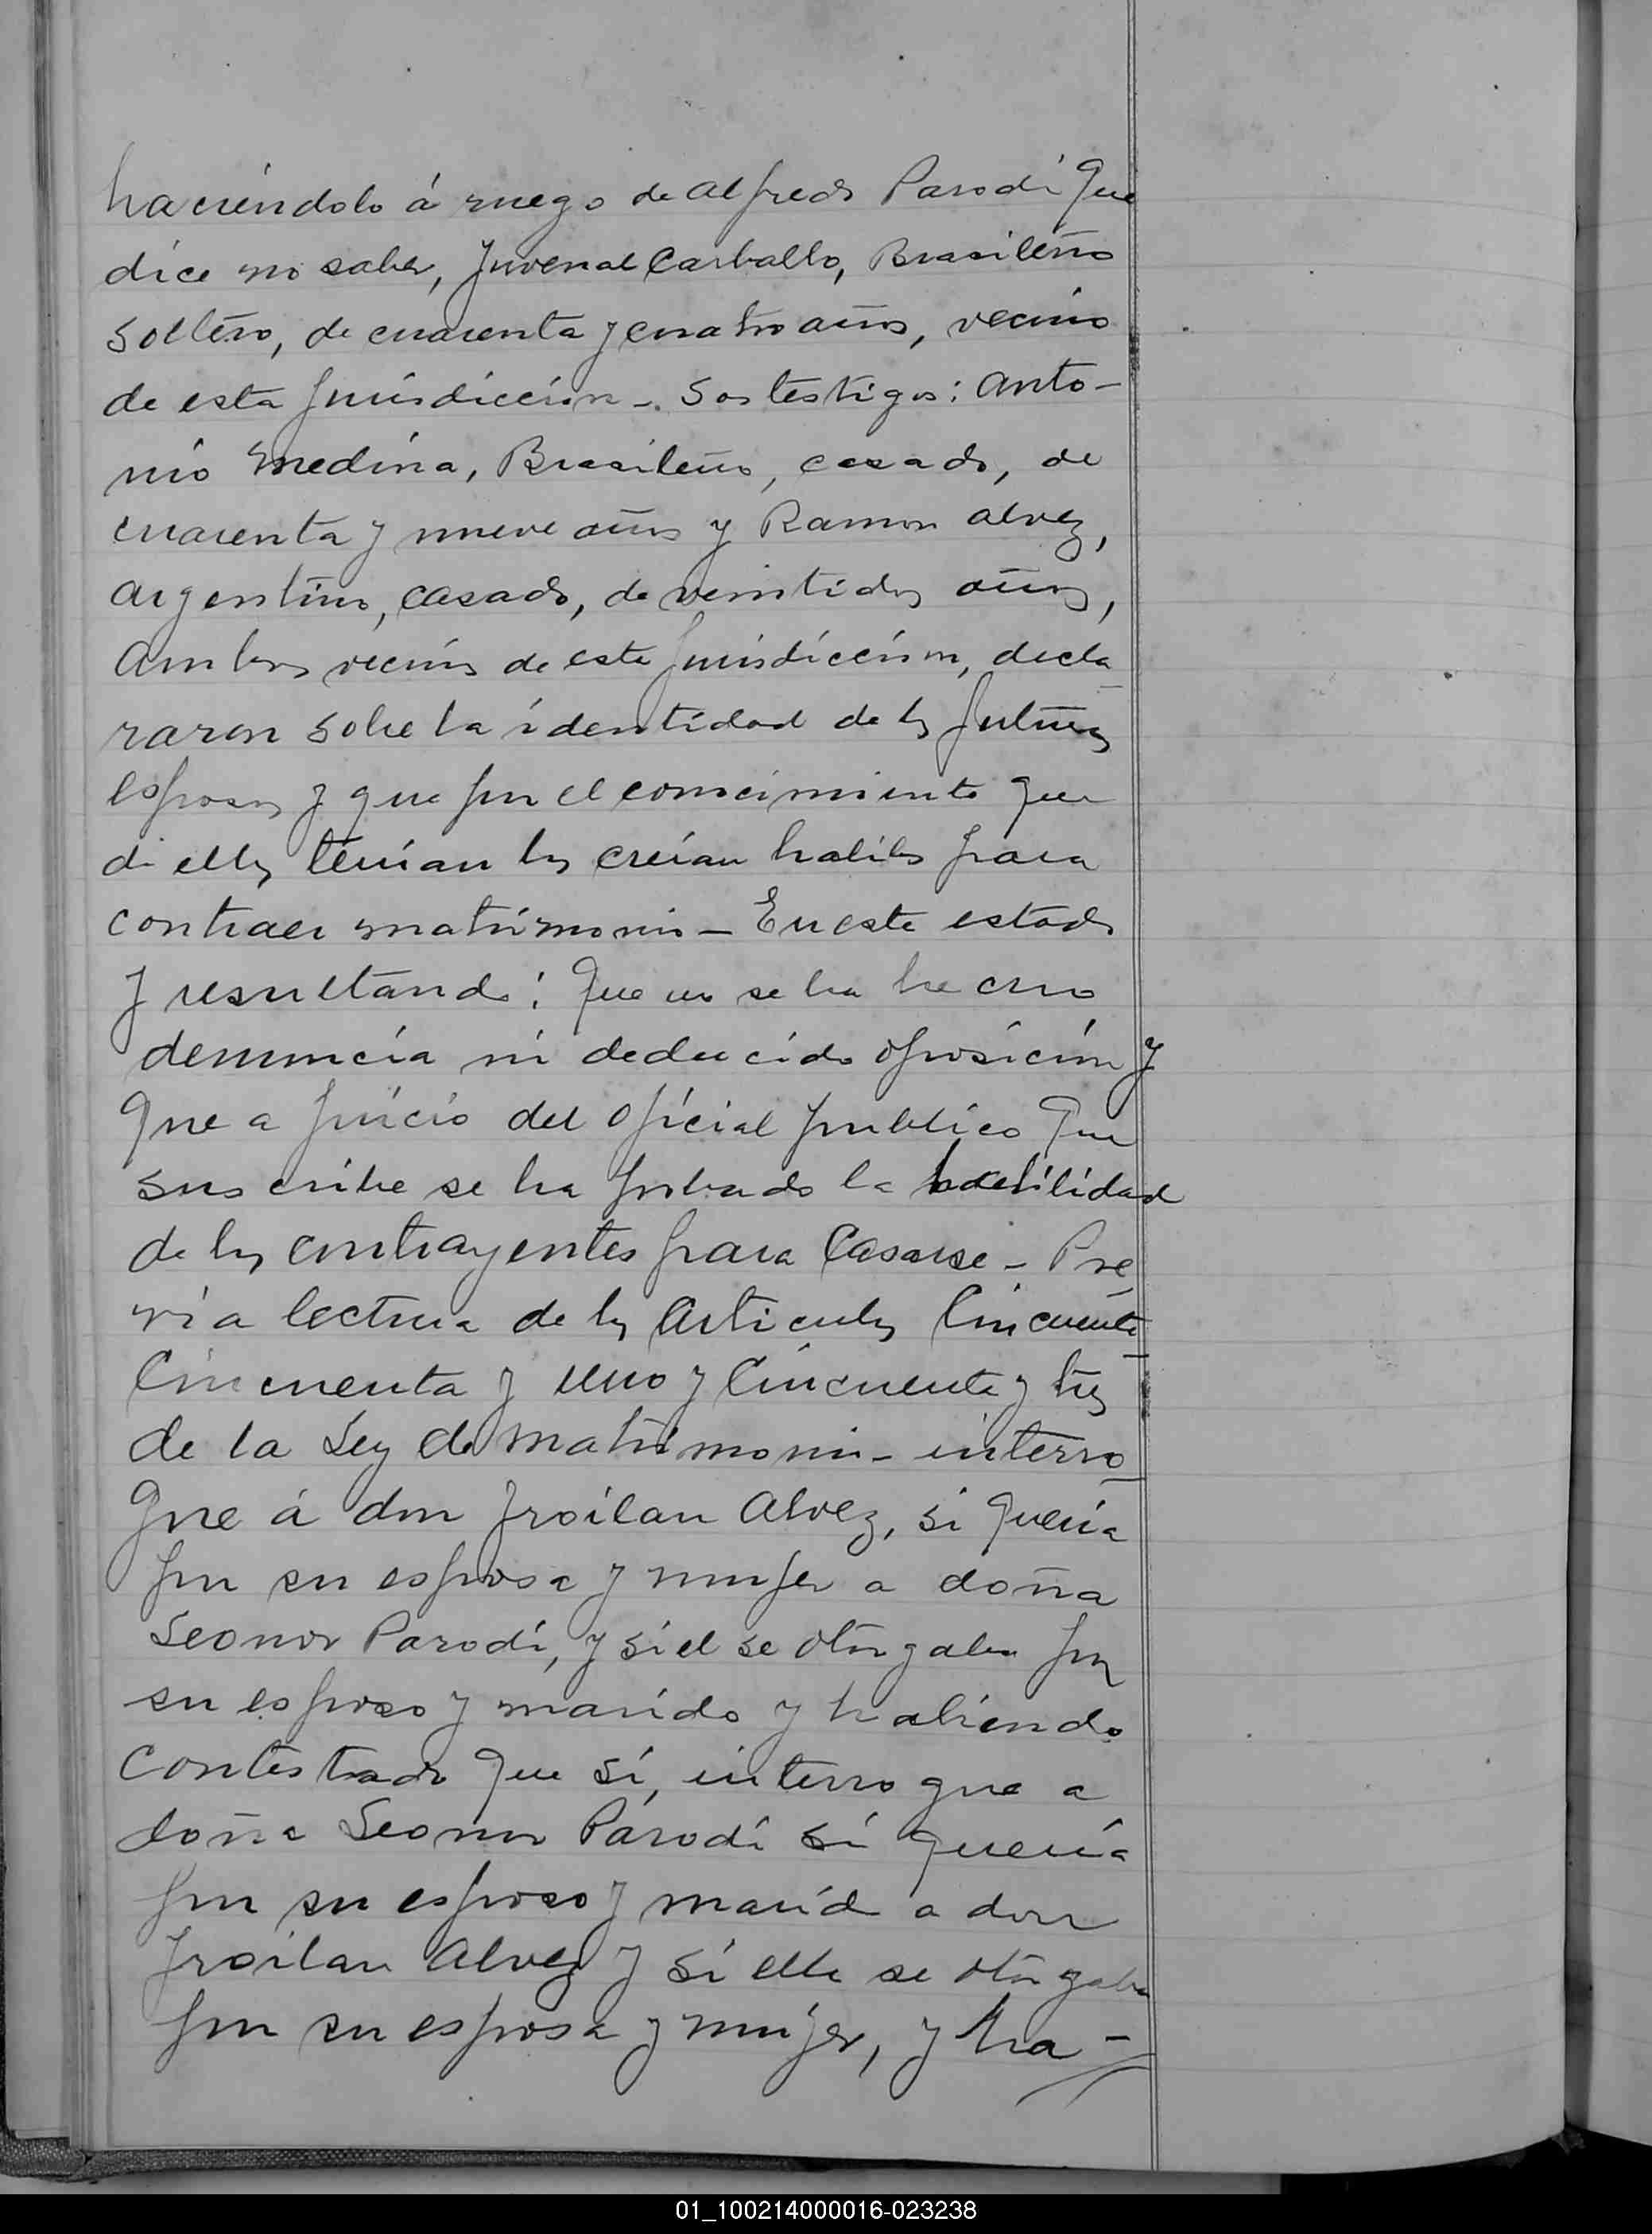 haciéndolo á ruego de Alfredo Parodi que
dice no saber, Juvenal Carballo, Brasileño
soltero, de cuarenta y cuatro años, vecino
de esta jurisdicción-. Los testigos: Anto-
nio Medina, Brasileño, casado, de
cuarenta y nueve años y Ramon Alvez,
argentino, casado, de veintidos años,
ambos vecinos de esta jurisdicción, decla
raron sobre la identidad de los futuros
esposos y que por el conocimiento que
de ellos tenían los creían habiles para
contraer matrimonio - En este estado
y resultando: Que no se ha hecho
denuncia ni deducido oposición y
que a juicio del oficial publico que
suscribe se ha probado la habilidad
de los contrayentes para casarse - Pre
via lectura de los articulos cincuenta
cincuenta y uno y cincuenta y tres
de la Ley de matrimonio - interro-
gue á don Froilan Alvez, si quería
por su esposa y mujer a doña
Leonor Parodi, y si el se otorgaba por
su esposo y marido y habiendo
contestado que sí, interrogue a
doña Leonor Parodi si quería
por su esposo y marido a don
Froilan Alvez y si ella se otorgaba
por su esposa y mujer, y ha-
01_100214000016-023238